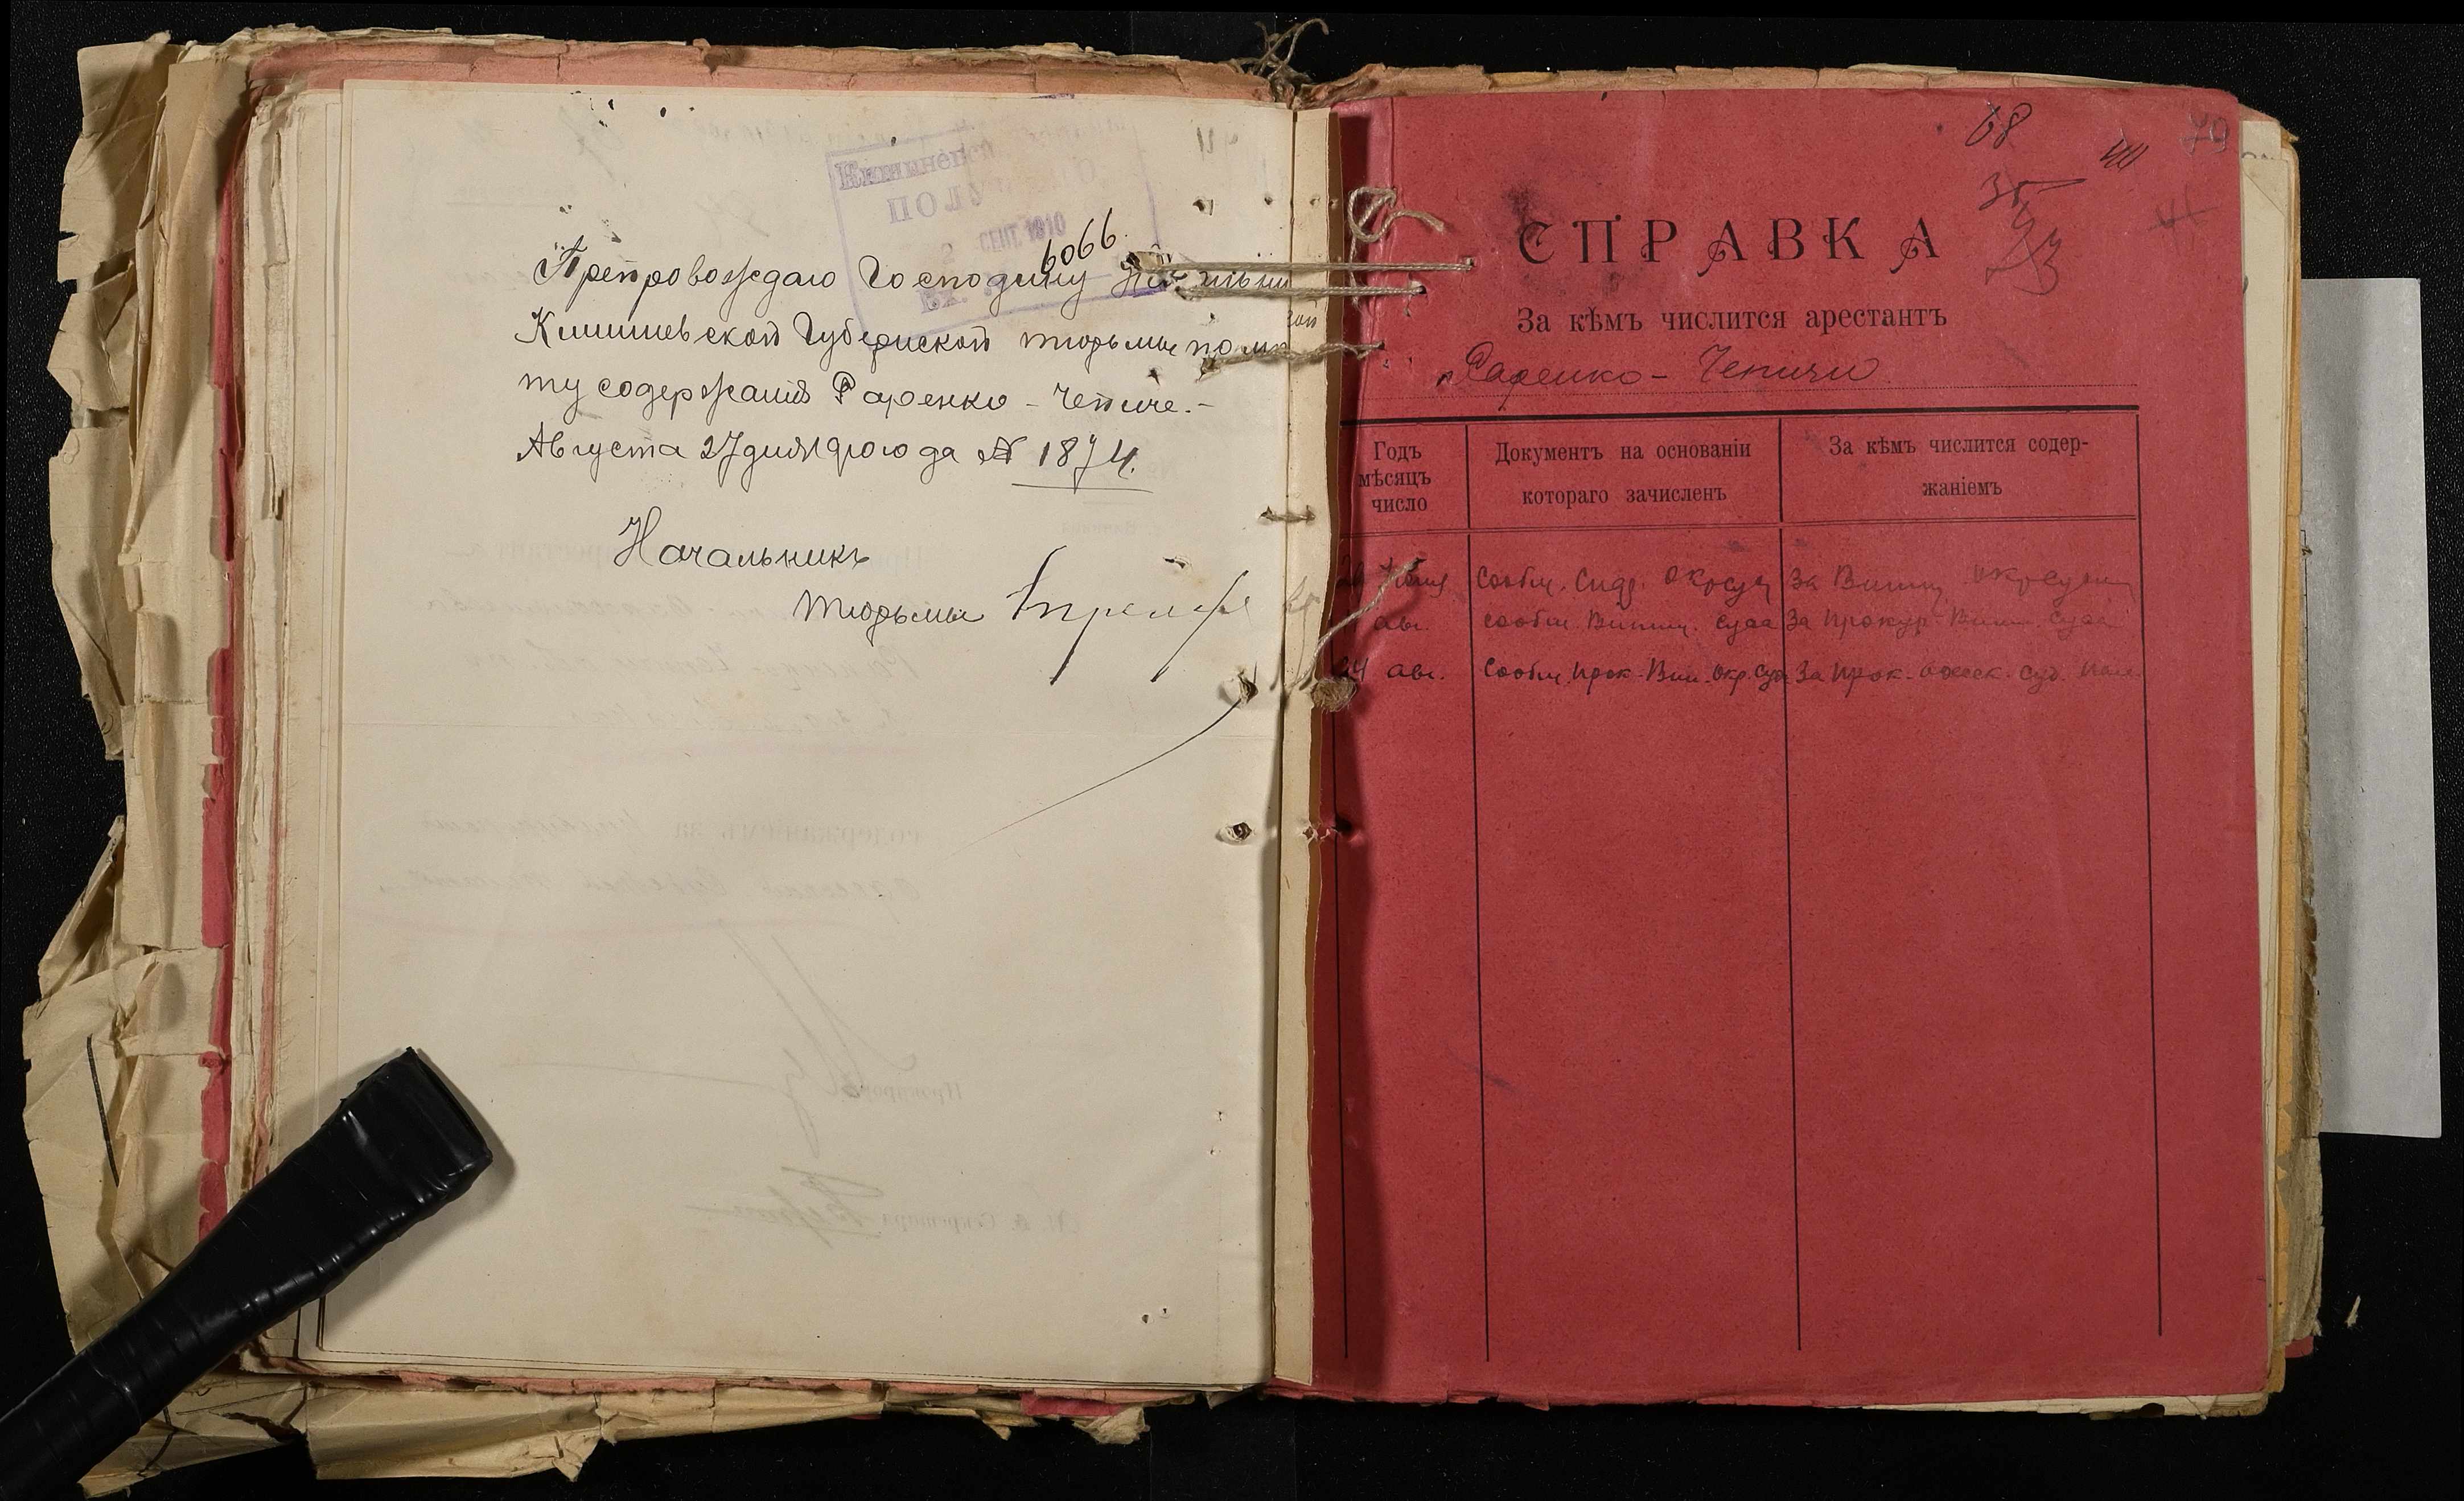 ПОЛУ
2 СЕНТ. 1910
6066.
Препровождаю Господину
Кишиневской Губернской тюрьмы по мѣ
ту содержанія Раренко-Чепиче.-
Августа 27 дня 1910 года № 1874.
Начальникъ
Тюрьмы
68
40
79
35
23
СПРАВКА
За кѣмъ числится арестантъ
Раренко-Чепичи
Годъ мѣсяцъ число
Документъ на основаніи котораго зачисленъ
За кѣмъ числится содержаніемъ
Сообщ. Окр суд За Окр судом
авг. сообщ. Винниц. суда За Прокур. Винн. суда
24 авг. Сообщ. Прок. Вин. Окр. Суд За Прок. Одесск. Суд. Пал.